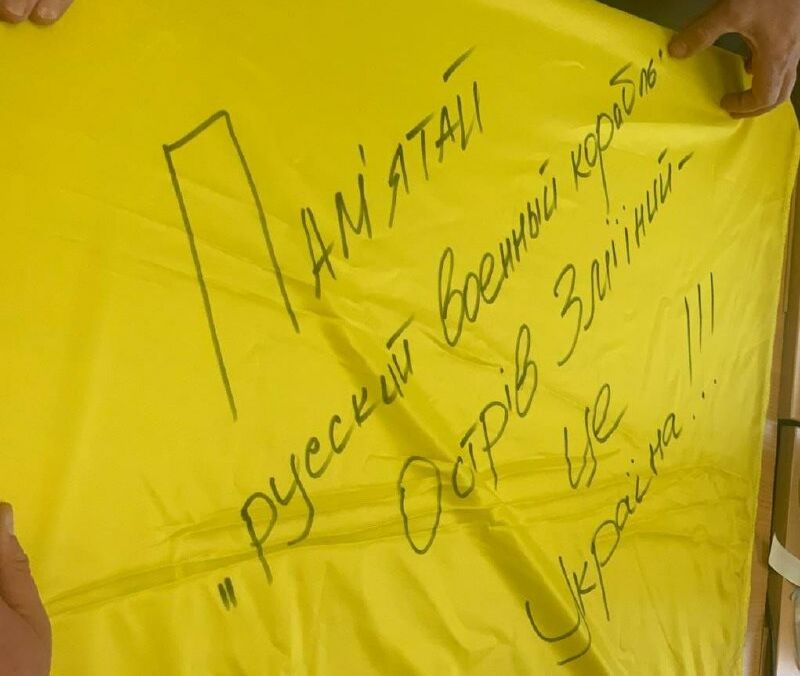 Пам'ятай
"русский военный корабль"
Острів Зміїний-
це
Україна...!!!